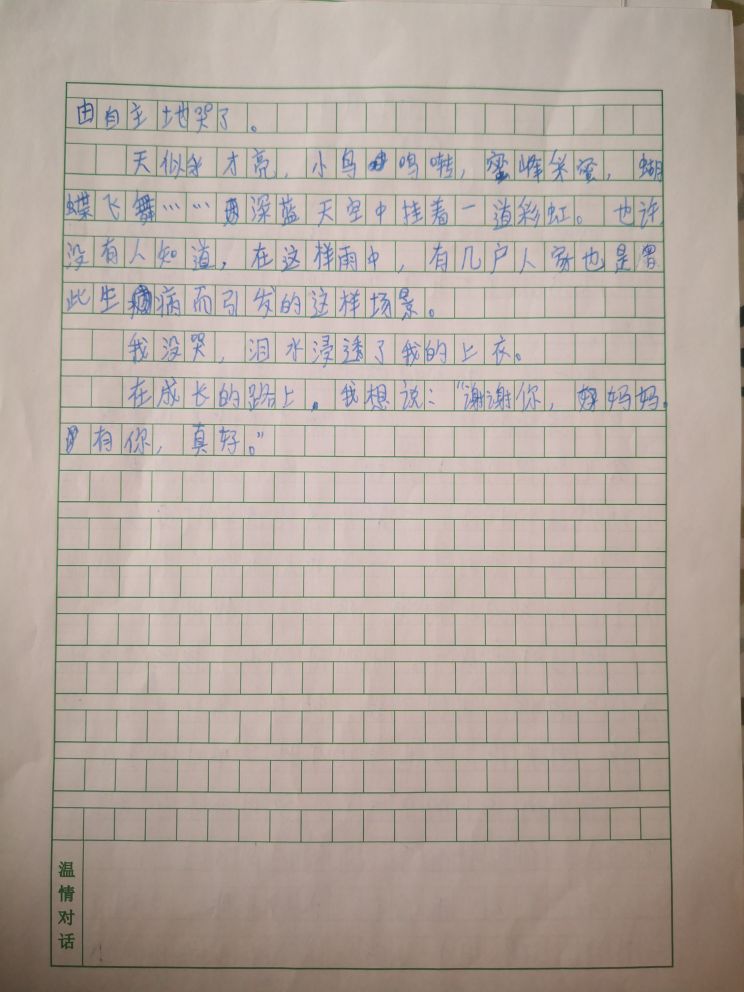 由自主地哭了。
天似才亮，小鸟鸣啭，蜜峰采蜜，蝴
蝶飞舞……深蓝天空中挂着一道彩虹。也许
没有人知道，在这样雨中，有几户人家也是
此生病而引发的这样场景。
我没哭，泪水浸透了我的上衣。
在成长的路上，我想说：“谢谢你，好妈妈。
有你，真好。”
温情对话